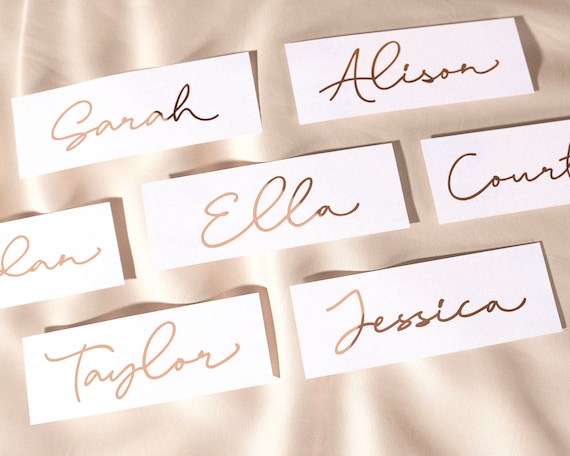 Sarah
Alison
Ella
Court
lan
Taylor
Jessica